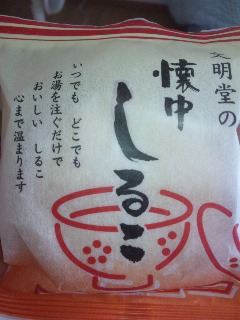 文明堂の
懐中
しるこ
いつでも どこでも
お湯を注ぐだけで
おいしい しるこ
心まで温まります